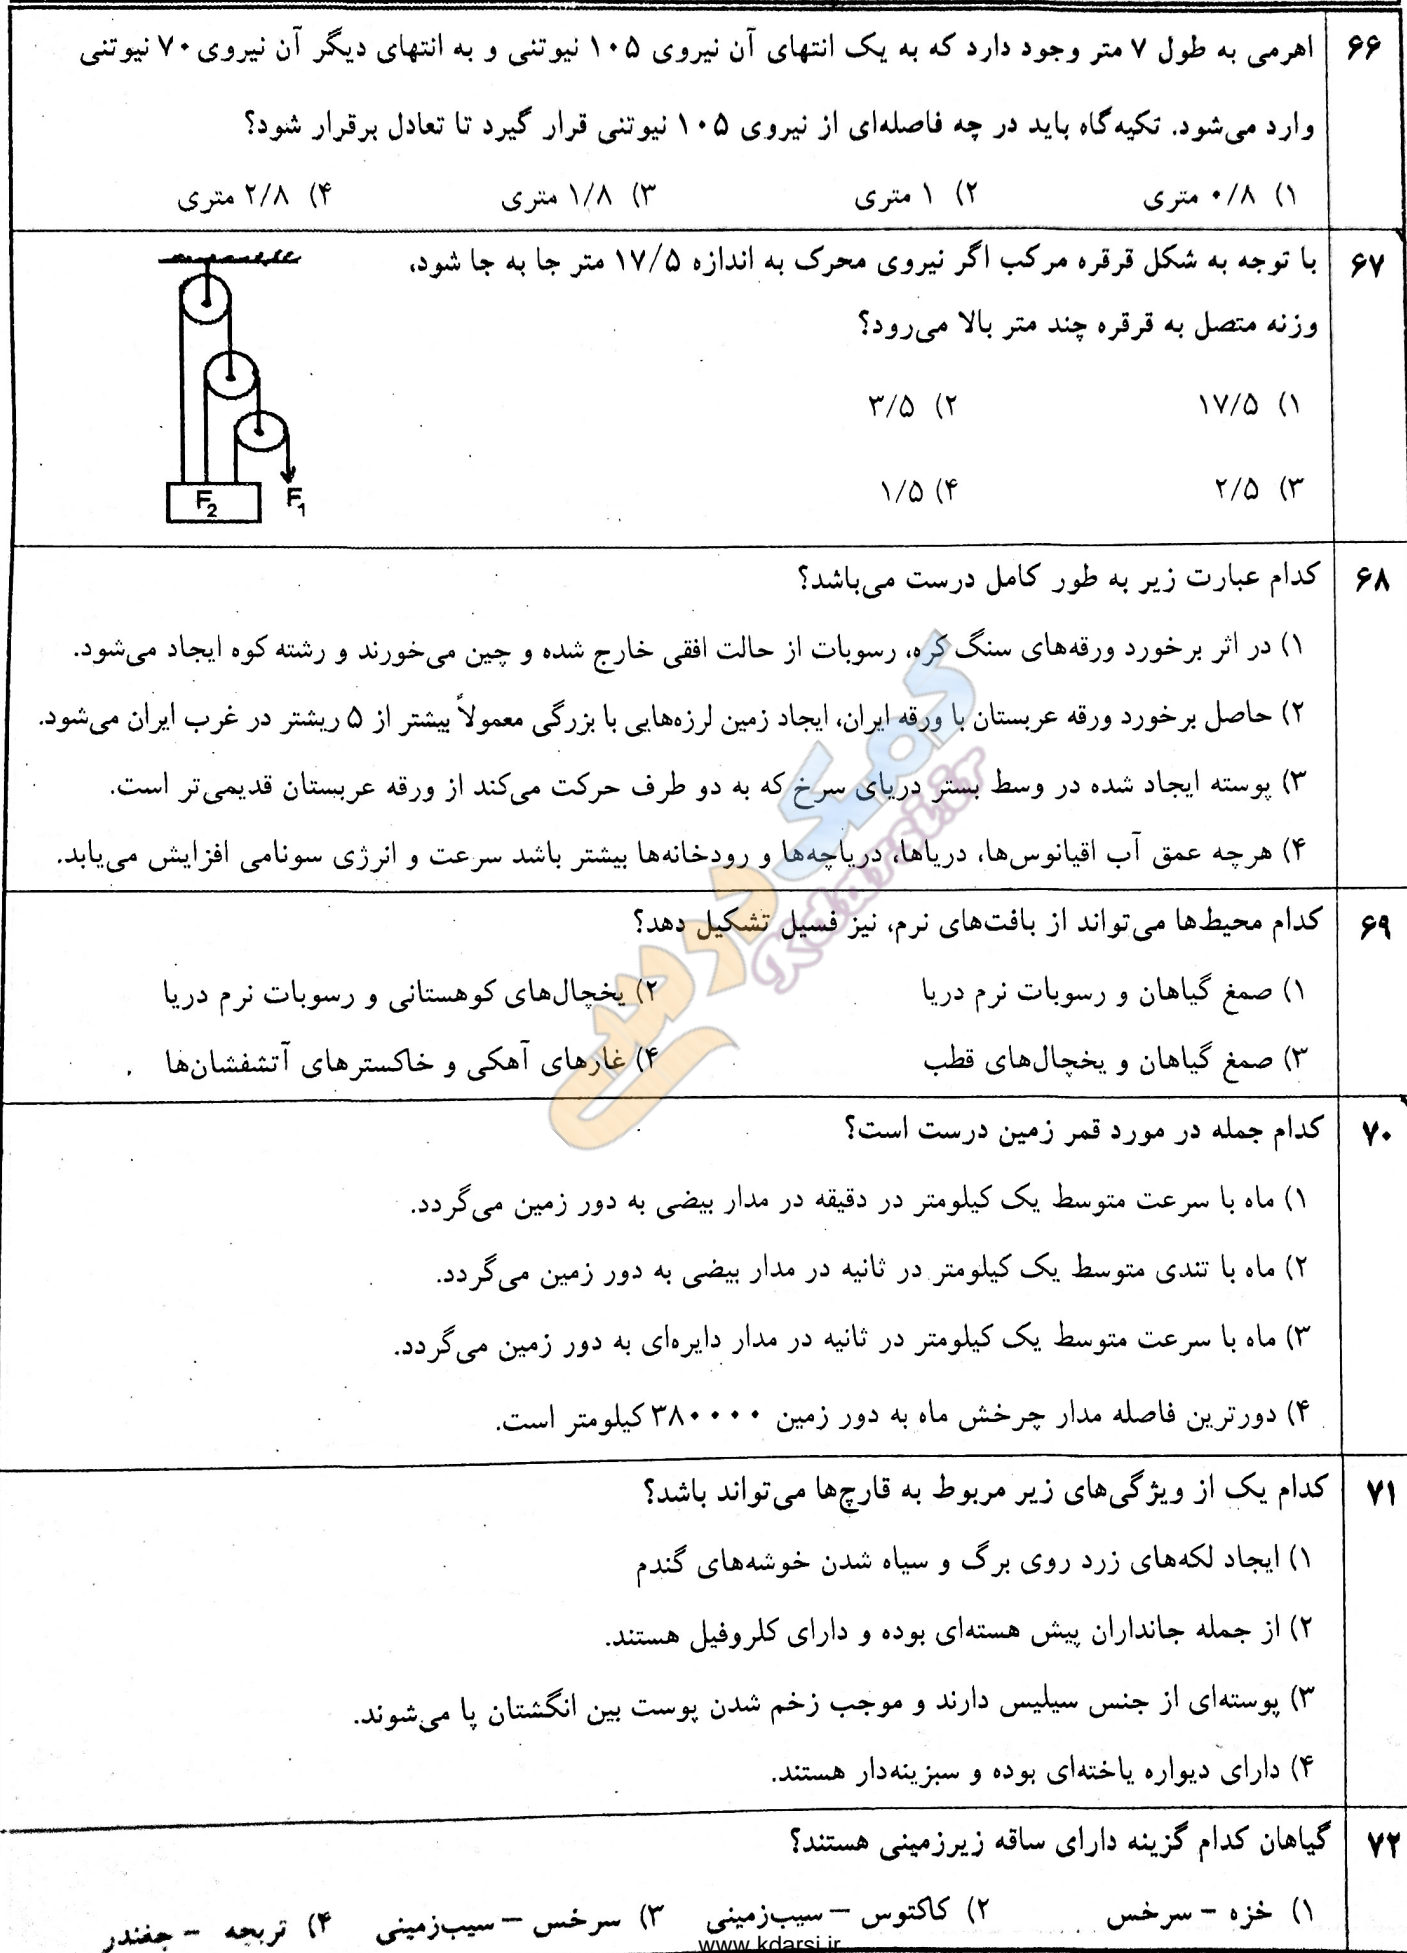 ۶۶ اهرمی به طول ۷ متر وجود دارد که به یک انتهای آن نیروی ۱۰۵ نیوتنی و به انتهای دیگر آن نیروی ۷۰ نیوتنی
وارد می‌شود. تکیه‌گاه باید در چه فاصله‌ای از نیروی ۱۰۵ نیوتنی قرار گیرد تا تعادل برقرار شود؟
۱) ۰/۸ متری ۲) ۱ متری ۳) ۱/۸ متری ۴) ۲/۸ متری
۶۷ با توجه به شکل قرقره مرکب اگر نیروی محرک به اندازه ۱۷/۵ متر جا به جا شود،
وزنه متصل به قرقره چند متر بالا می‌رود؟
۱) ۱۷/۵ ۲) ۳/۵
۳) ۲/۵ ۴) ۱/۵
F2 F1
۶۸ کدام عبارت زیر به طور کامل درست می‌باشد؟
۱) در اثر برخورد ورقه‌های سنگ کره، رسوبات از حالت افقی خارج شده و چین می‌خورند و رشته کوه ایجاد می‌شود.
۲) حاصل برخورد ورقه عربستان با ورقه ایران، ایجاد زمین لرزه‌هایی با بزرگی معمولاً بیشتر از ۵ ریشتر در غرب ایران می‌شود.
۳) پوسته ایجاد شده در وسط بستر دریای سرخ که به دو طرف حرکت می‌کند از ورقه عربستان قدیمی‌تر است.
۴) هرچه عمق آب اقیانوس‌ها، دریاها، دریاچه‌ها و رودخانه‌ها بیشتر باشد سرعت و انرژی سونامی افزایش می‌یابد.
۶۹ کدام محیط‌ها می‌تواند از بافت‌های نرم، نیز فسیل تشکیل دهد؟
۱) صمغ گیاهان و رسوبات نرم دریا ۲) یخچال‌های کوهستانی و رسوبات نرم دریا
۳) صمغ گیاهان و یخچال‌های قطب ۴) غارهای آهکی و خاکسترهای آتشفشان‌ها
۷۰ کدام جمله در مورد قمر زمین درست است؟
۱) ماه با سرعت متوسط یک کیلومتر در دقیقه در مدار بیضی به دور زمین می‌گردد.
۲) ماه با تندی متوسط یک کیلومتر در ثانیه در مدار بیضی به دور زمین می‌گردد.
۳) ماه با سرعت متوسط یک کیلومتر در ثانیه در مدار دایره‌ای به دور زمین می‌گردد.
۴) دورترین فاصله مدار چرخش ماه به دور زمین ۳۸۰۰۰۰ کیلومتر است.
۷۱ کدام یک از ویژگی‌های زیر مربوط به قارچ‌ها می‌تواند باشد؟
۱) ایجاد لکه‌های زرد روی برگ و سیاه شدن خوشه‌های گندم
۲) از جمله جانداران پیش هسته‌ای بوده و دارای کلروفیل هستند.
۳) پوسته‌ای از جنس سیلیس دارند و موجب زخم شدن پوست بین انگشتان پا می‌شوند.
۴) دارای دیواره یاخته‌ای بوده و سبزینه‌دار هستند.
۷۲ گیاهان کدام گزینه دارای ساقه زیرزمینی هستند؟
۱) خزه - سرخس ۲) کاکتوس - سیب‌زمینی ۳) سرخس - سیب‌زمینی ۴) تربچه - چغندر
کمک درسی
Kdarsi.ir
www.kdarsi.ir